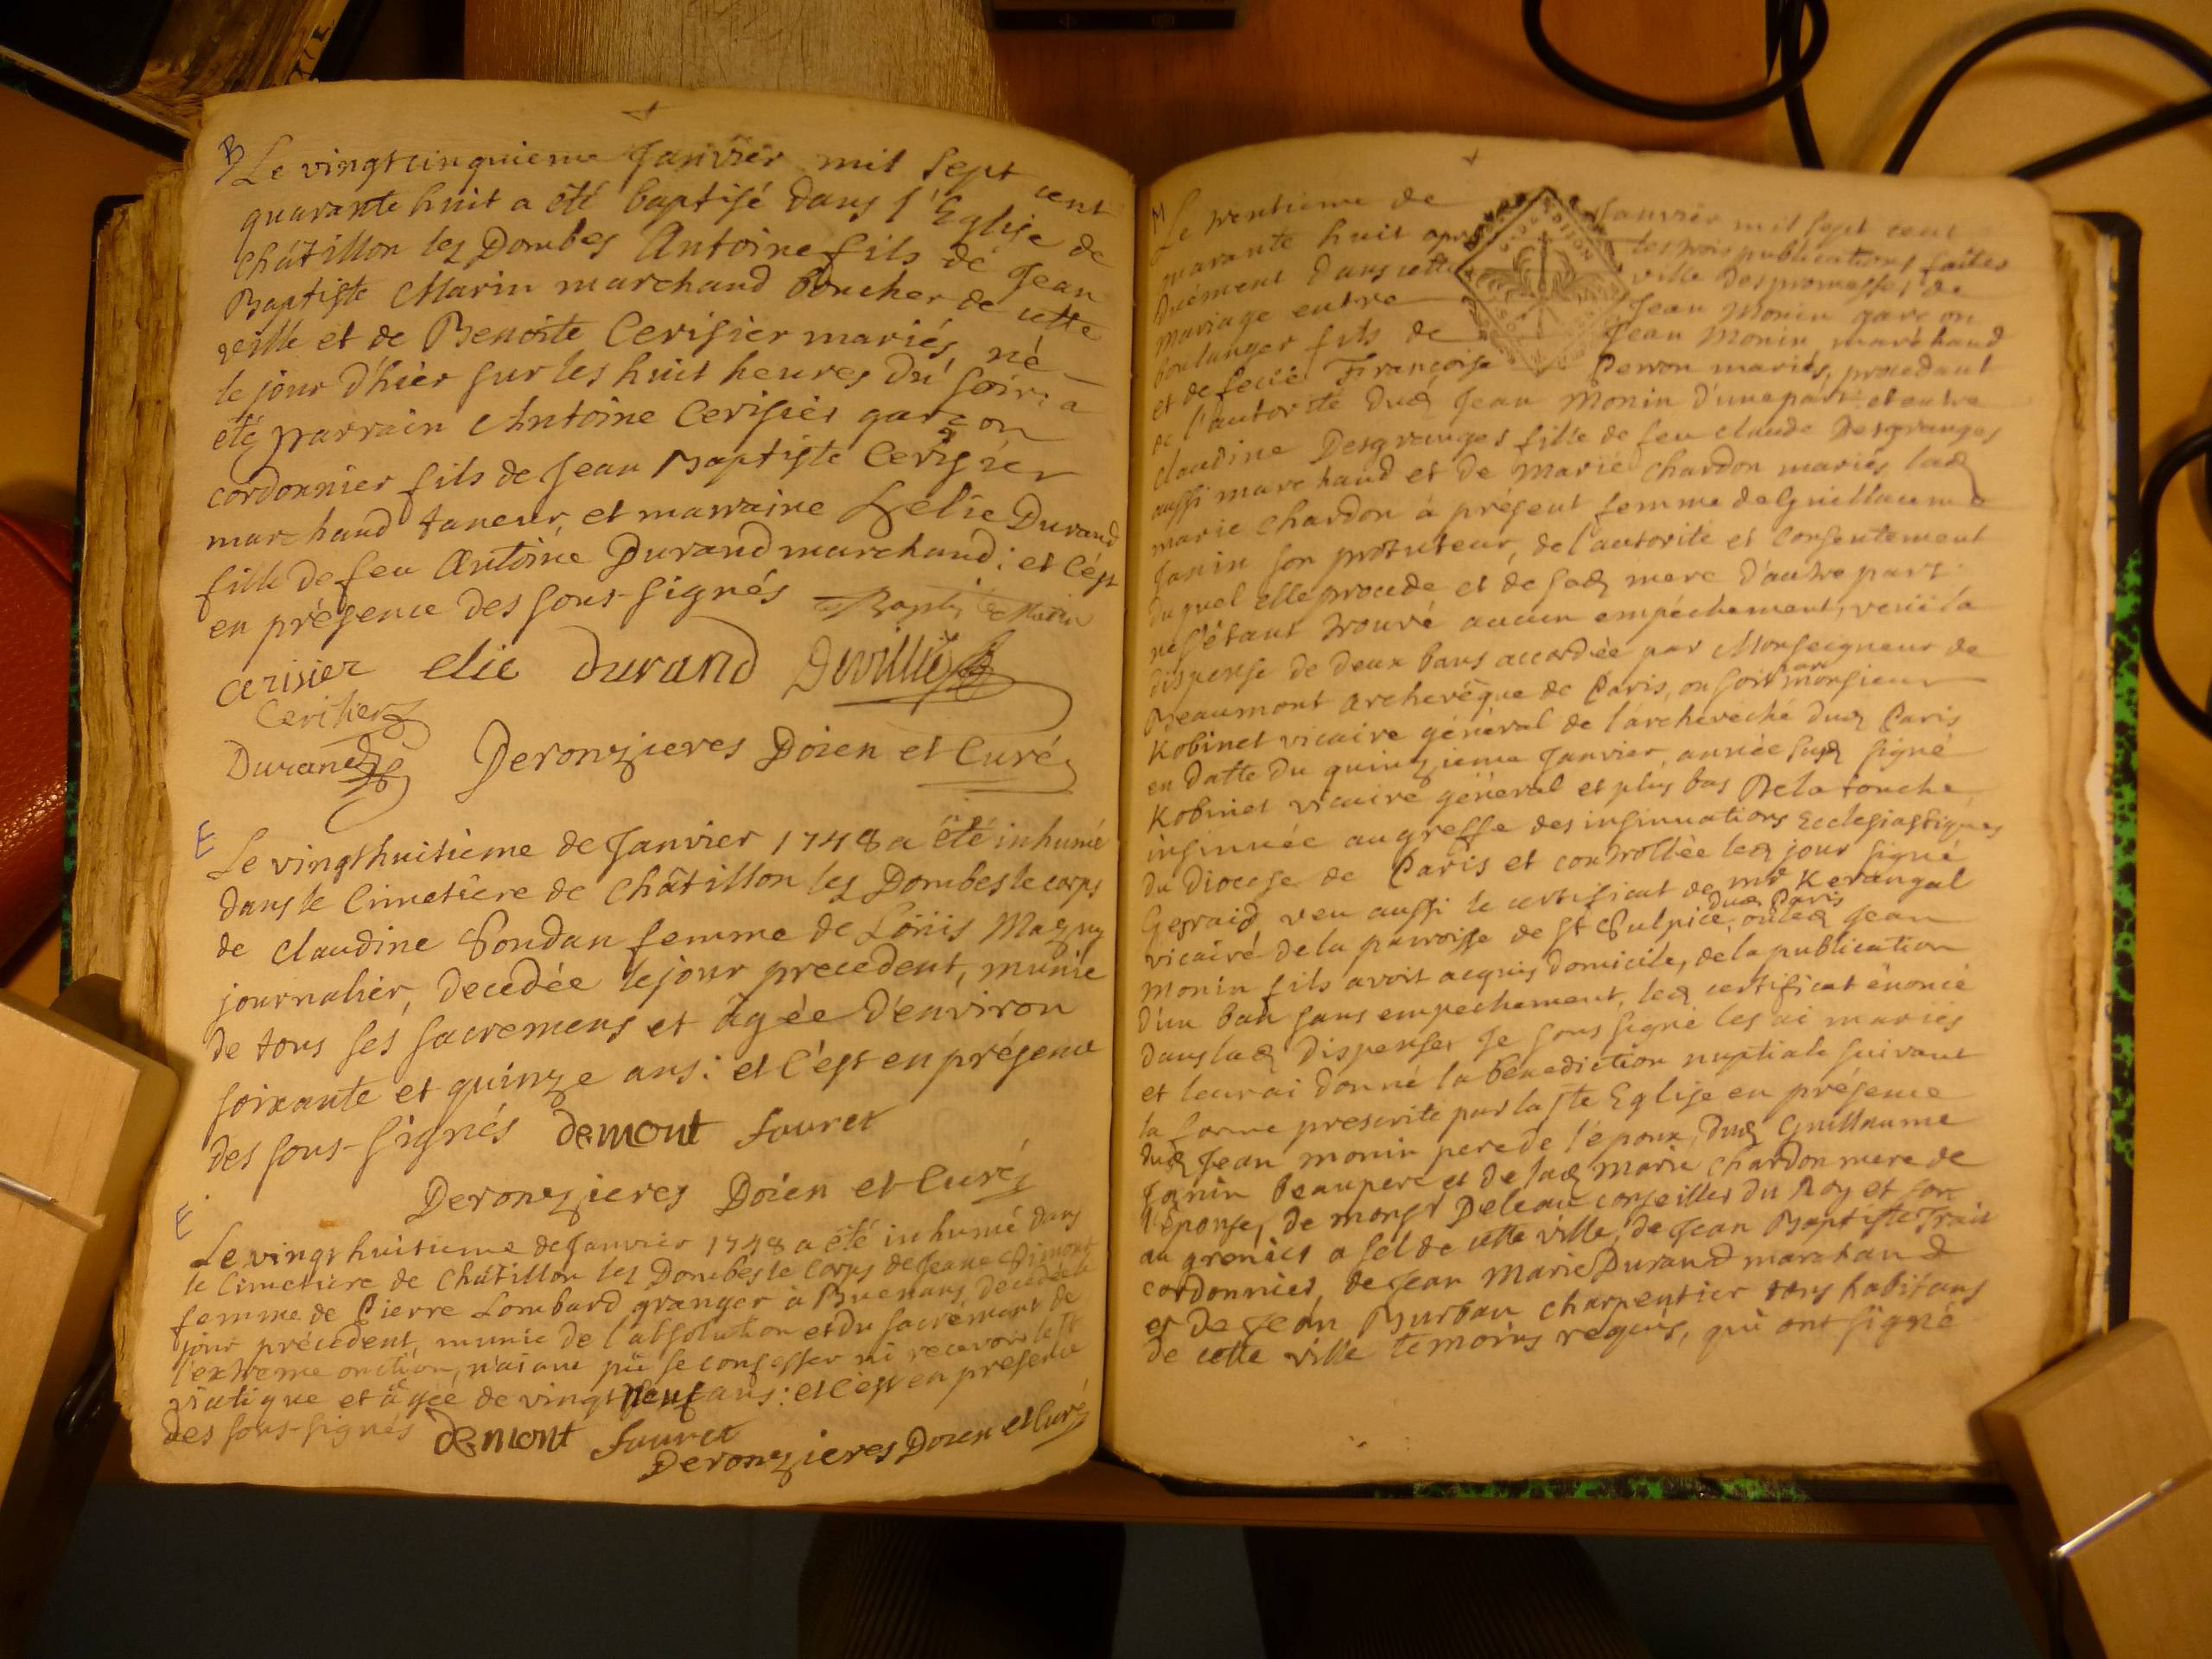 B
Le vingtcinquieme Janvier mil sept cent
quarante huit a été baptisé dans l'Eglise de
châtillon les Dombes Antoine fils de Jean
Baptiste Marin marchand boucher de cette
ville et de Benoite Cerisier mariés, né
le jour d'hier sur les huit heures du soir: a
été parrain Antoine Cerisier garçon
cordonnier fils de Jean Baptiste Cerisier
marchand taneur, et marraine Durand
fille de feu Antoine Durand marchand: et c'est
en présence des sous-signés
cerisier elie durand
Durand Deronzieres Doien et Curé
E
Le vingthuitième de Janvier 1748 a été inhumé
dans le Cimetière de châtillon les Dombes le corps
de claudine femme de Löüis Magny
journalier, decedée le jour precedent, munie
de tous ses sacremens et âgée d'environ
soixante et quinze ans: et c'est en présence
des sous-signés demont
Deronzieres Doien et Curé
E
Le vingt huitieme de Janvier 1748 a été inhumé dans
le Cimetiere de Châtillon les Dombes le corps de Jeane
femme de Pierre Lombard granger à Buenans, decedée le
jour précedent, munie de l'absolution et du sacrément de
l'extreme onction, n'aiant pû se confesser ni recevoir le st
viatique et âgée de vingt neuf ans: et c'est en présence
des sous-signés demont
Deronzieres Doien et Curé
M
Le trentieme de Janvier mil sept cent
quarante huit après les trois publications faites
duëment dans cette ville des promesses de
mariage entre Jean Monin garçon
boulanger fils de Jean Monin marchand
et de feüe Françoise Perron mariés, procedant
de l'autorité dud Jean Monin d'une part: et entre
claudine Desgranges fille de feu claude Desgranges
aussi marchand et de Marie Chardon mariés lad
marie chardon à présent femme de Guillaume
Janin son protuteur, de l'autorité et consentement
duquel elle procede et de sad mere d'autre part:
ne s'étant trouvé aucun empéchement, veüe la
dispense de deux bans accordée par Monseigneur de
Beaumont Archevêque de Paris, ou soit par monsieur
Robinet vicaire général de l'archevéché dud Paris
en datte du quinzieme Janvier, année susd signé
Robinet vicaire général et plus bas De la touche,
insinuée au greffe des insinuations Ecclesiastiques
du Diocese de Paris et controllée led jour signé
veu aussi le certificat de mr Kerangal
vicaire de la parroisse de St Sulpice dud Paris, où led Jean
monin fils avoit acquis domicile, de la publication
d'un ban sans empechement, led certificat énoncé
dans lad dispense, Je sous signé les ai mariés
et leur ai donné la bénédiction nuptiale suivant
la forme prescrite par la ste Eglise en présence
dud Jean monin pere de l'époux, dud Guillaume
Janin beaupere et de lad marie chardon mere de
l'épouse, de monsr Deleau conseiller du Roy et son
au grenier a sel de cette ville, de Jean Baptiste
cordonnier, de Jean Marie Durand marchand
et de Jean Burban charpentier tous habitans
de cette ville temoins requis, qui ont signé